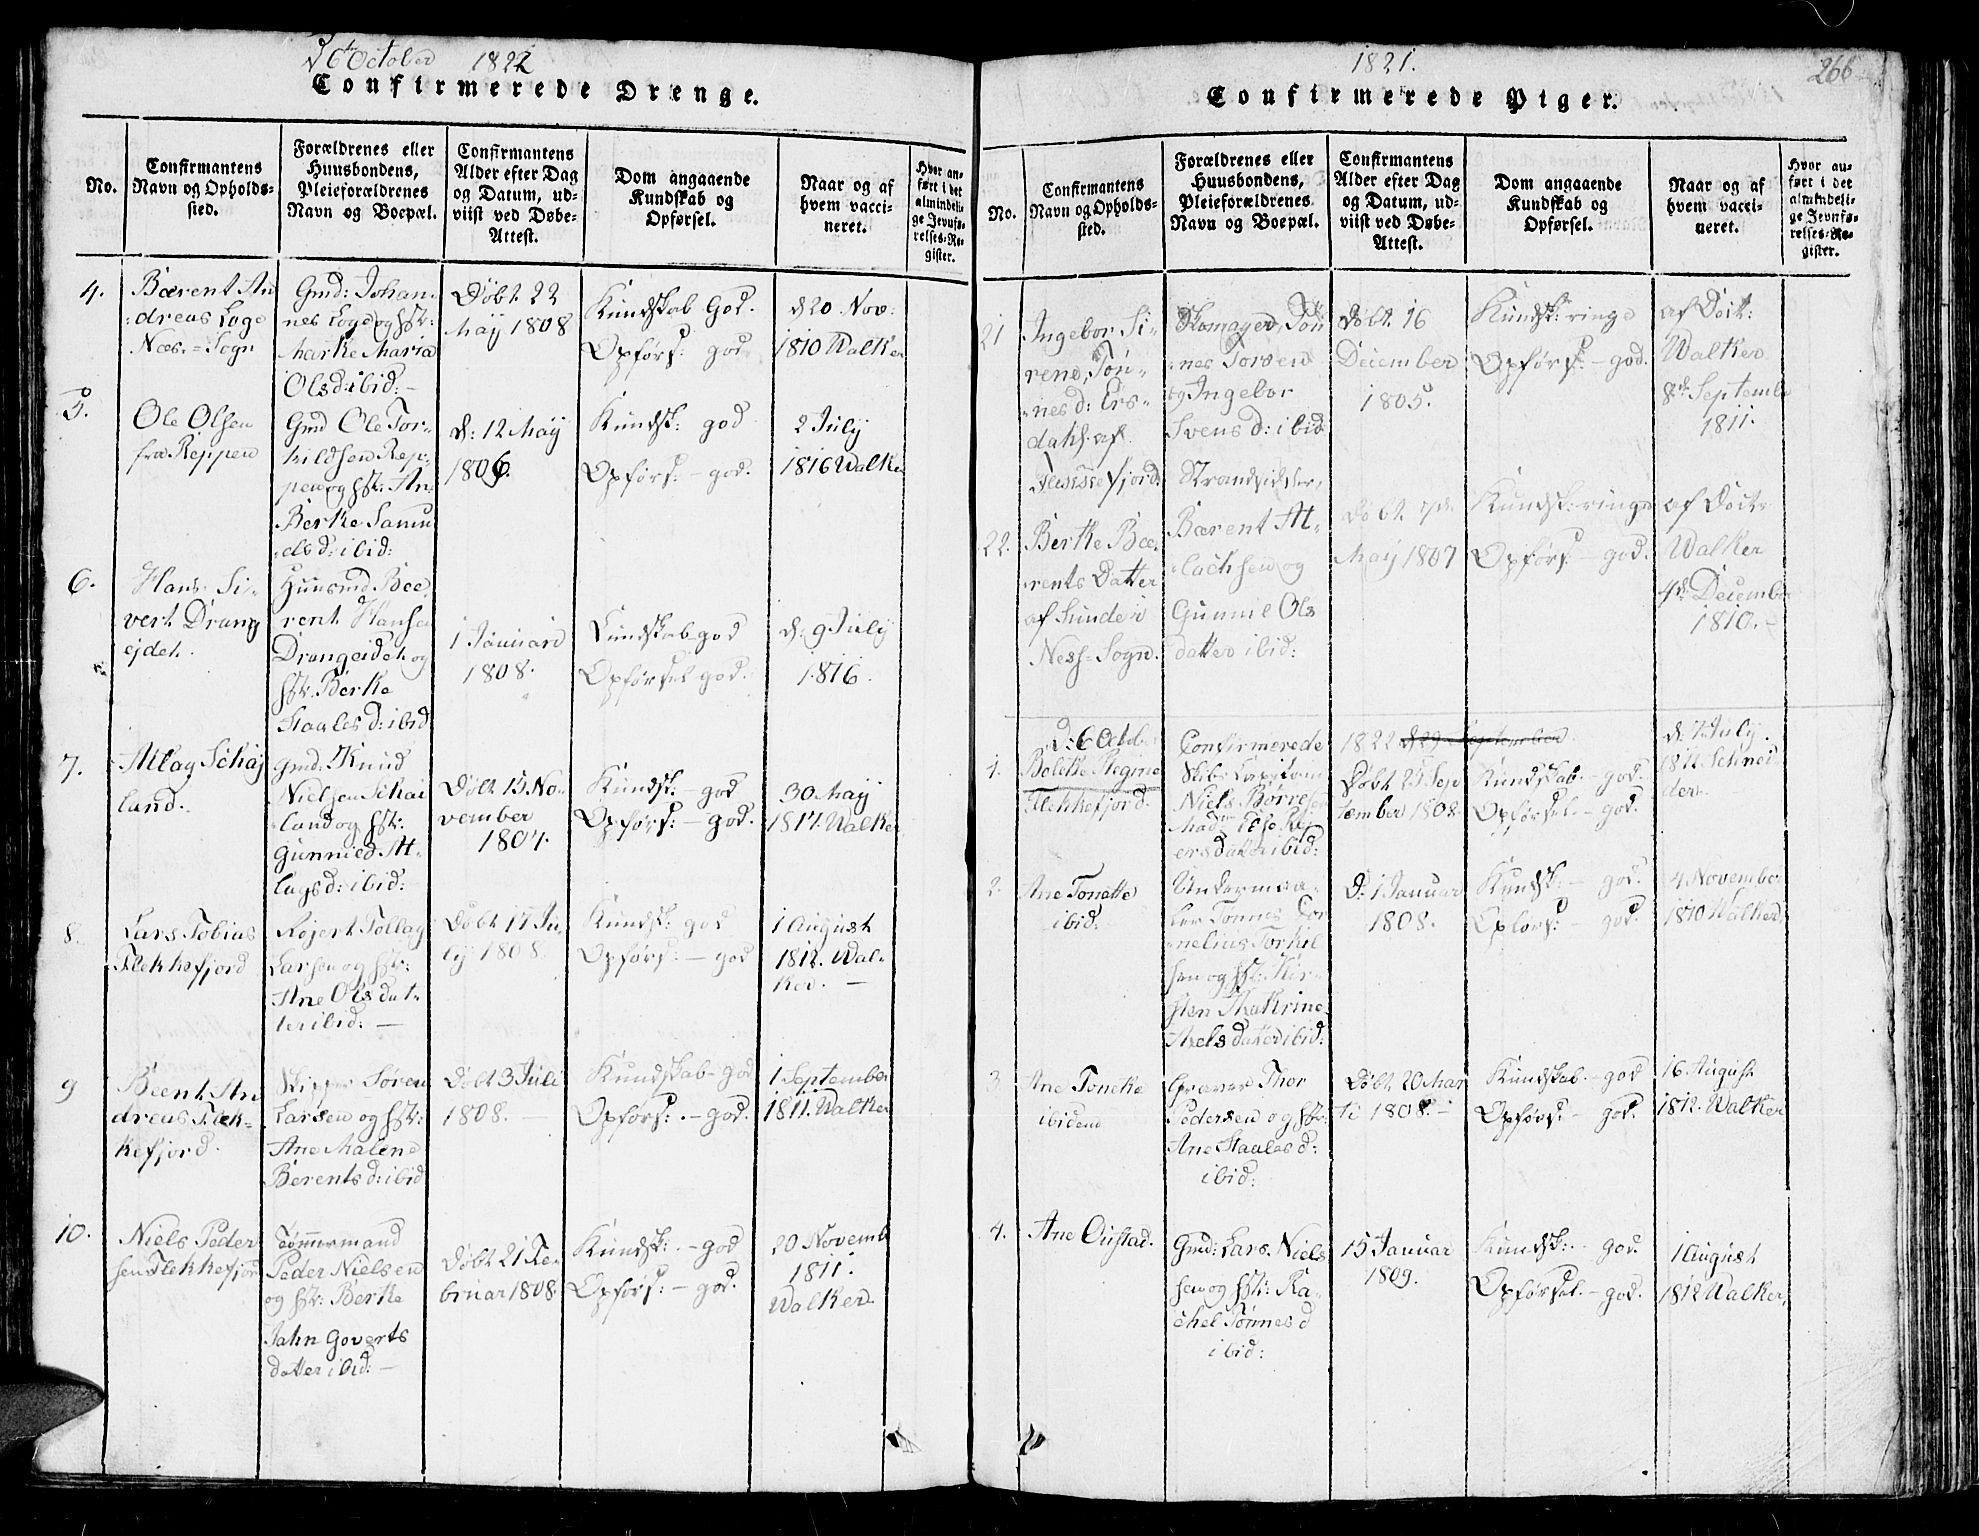 d 6t October 1822
Confirmerede Drenge.
No.
Confirmantens
Navn og Opholds-
sted.
Forældrenes eller
Huusbondens,
Pleieforældrenes
Navn og Boepæl.
Confirmantens
Alder efter Dag
og Datum, ud-
viist ved Døbe-
Attest.
Dom angaaende
Kundskab og
Opførsel.
Naar og af
hvem vacci-
neret.
Hvor an-
ført i det
almindeli-
ge Jevnfø-
relses-Re-
gister.
4.
Bærent An
dreas Loge
Næs-Sogn
Gmd: Johan-
nes Loge og Hst:
Marke Maria
Olsd: ibid:-
Døbt 22
May 1808
Kundskab God.
Opførs: god
d 20 Nov:
1810 Walker
5.
Ole Olsen
fra Reppen
Gmd Ole Tor-
kildsen Rep-
pen og Hst: An-
Berthe Samu
elsd: ibid:
d: 12 May
1806.
Kundsk: god
Opførs: - god.
2 July
1816 Walker
6.
Hans Si-
vert Drang
ejdet.
Huusmd. Bee
rent Hansen
Drangeidet og
Hst. Berthe
Staalesd: ibid
1 Januari
1808.
Kundskab god
Opførsel god.
d: 9 July
1816.
7.
Atlag Schaj
land.
Gmd: Knud
Nielsen Schai
land og Hst:
Gunnied At-
lagsd: ibid:
Døbt 15 No-
vember
1807.
Kundsk. - god
Opførs: - god.
30 May
1817. Walker
8.
Lars Tobias
Flekkefjord
Rejert Tollag
Larsen og Hst:
Ane Olsdat-
ter ibid: -
Døbt 17 Ju-
ly 1808.
Kundsk: god
Opførs: - god
1 August
1812. Wal-
ker. -
9
Beent An
dreas Flek-
kefjord.
Skipper Søren
Larsen og Hst:
Ane Malene
Berentsd: ibid
Døbt 3 Juli
1808. -
Kundskab - god
Opførs: - god.
1 September
1811. Walker
10.
Niels Peder
sen Flekkefjor
Tømmermand
Peder Nielsen
og Hst: Berthe
Jahn Goverts
datter ibid: -
Døbt 21 Fe-
bruar 1808.
Kundsk: - god
Opførs: - god.
20 Novemb
1811.
Walker
1821.
266
Confirmerede Piger.
No.
Confirmantens
Navn og Opholds-
sted.
Forældrenes eller
Huusbondens,
Pleieforældrenes
Navn og Boepæl.
Confirmantens
Alder efter Dag
og Datum, ud-
viist ved Døbe-
Attest.
Dom angaaende
Kundskab og
Opførsel.
Naar og af
hvem vacci-
neret.
Hvor an-
ført i det
almindeli-
ge Jevnfø-
relses-Re-
gister.
21
Ingebor Si-
rene, Tøn-
nesd: Ers-
dahl af
Flekkefjord.
Skomager Tøn
nes Torsen
og Ingebor
Svensd: ibid
Døbt 16
December
1805.
Kundsk: ringe
Opførs: - god.
af Doit:
Walker
8de Septemb
1811.
22.
Berthe Bæ-
rents Datter
af Sunde i
Ness-Sogn.
Strandsidder,
Bærent At-
lachsen og
Gunnil Ols
datter ibid:
Døbt 7de
May 1807
Kundsk: ringe
Opførs: - god.
af Doit:
Walker
4de Decembe
1810. -
d: 6 Octb
Confirmerede
1822
1.
Bolette Stegme
Flekkefjord.
Skibs Capitain
Niels Børresen
ersdatter ibid:
Døbt 25 Sep
tember 1808.
Kundskab. - god.
Opførsel. - god.
d: 7 July.
1812 Schnei
der.
2.
Ane Tonette
ibid:
Undermaa-
ler Tønnes Cor
nelius Torkil
sen og Hst: Kir-
sten Thakrine
Axelsdatter ibid:
D: 1 Januar
1808.
Kundsk: - god.
Opførs: - god.
4 November
1810 Walker
3.
Ane Tonette
ibidem
Graver Thor
Pedersen og Hst:
Ane Staalesd:
ibid:
Døbt 20 Mar
ti 1808. -
Kundskab. - god
Opførs: - god.
16 August
1812. Walker
4.
Ane Oustad.
Gmd: Lars Niels
sen og Hst: Ra-
chel Tønnesd
ibid:
15 Januar
1809.
Kundsk: - god.
Opførsel. - god.
1 August
1812 Walker,